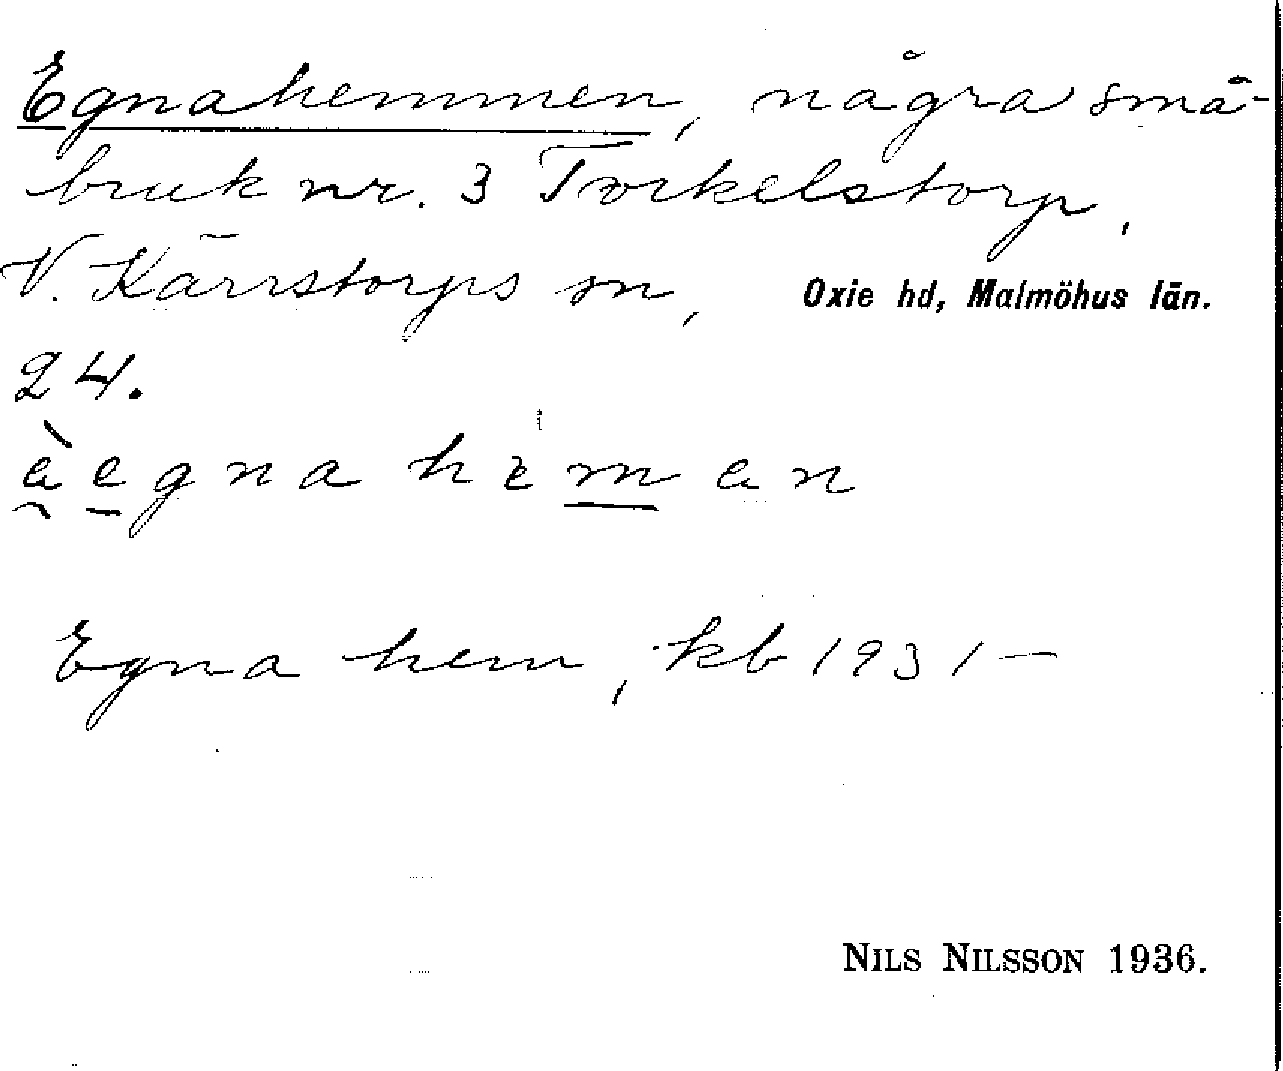 Egnahemmen, några små-
bruk nr. 3 Torkelstorp,
V. Kärrstorps sn, Oxie hd, Malmöhus län.
24.
Egna hem, kb 1931—
NILS NILSSON 1936.